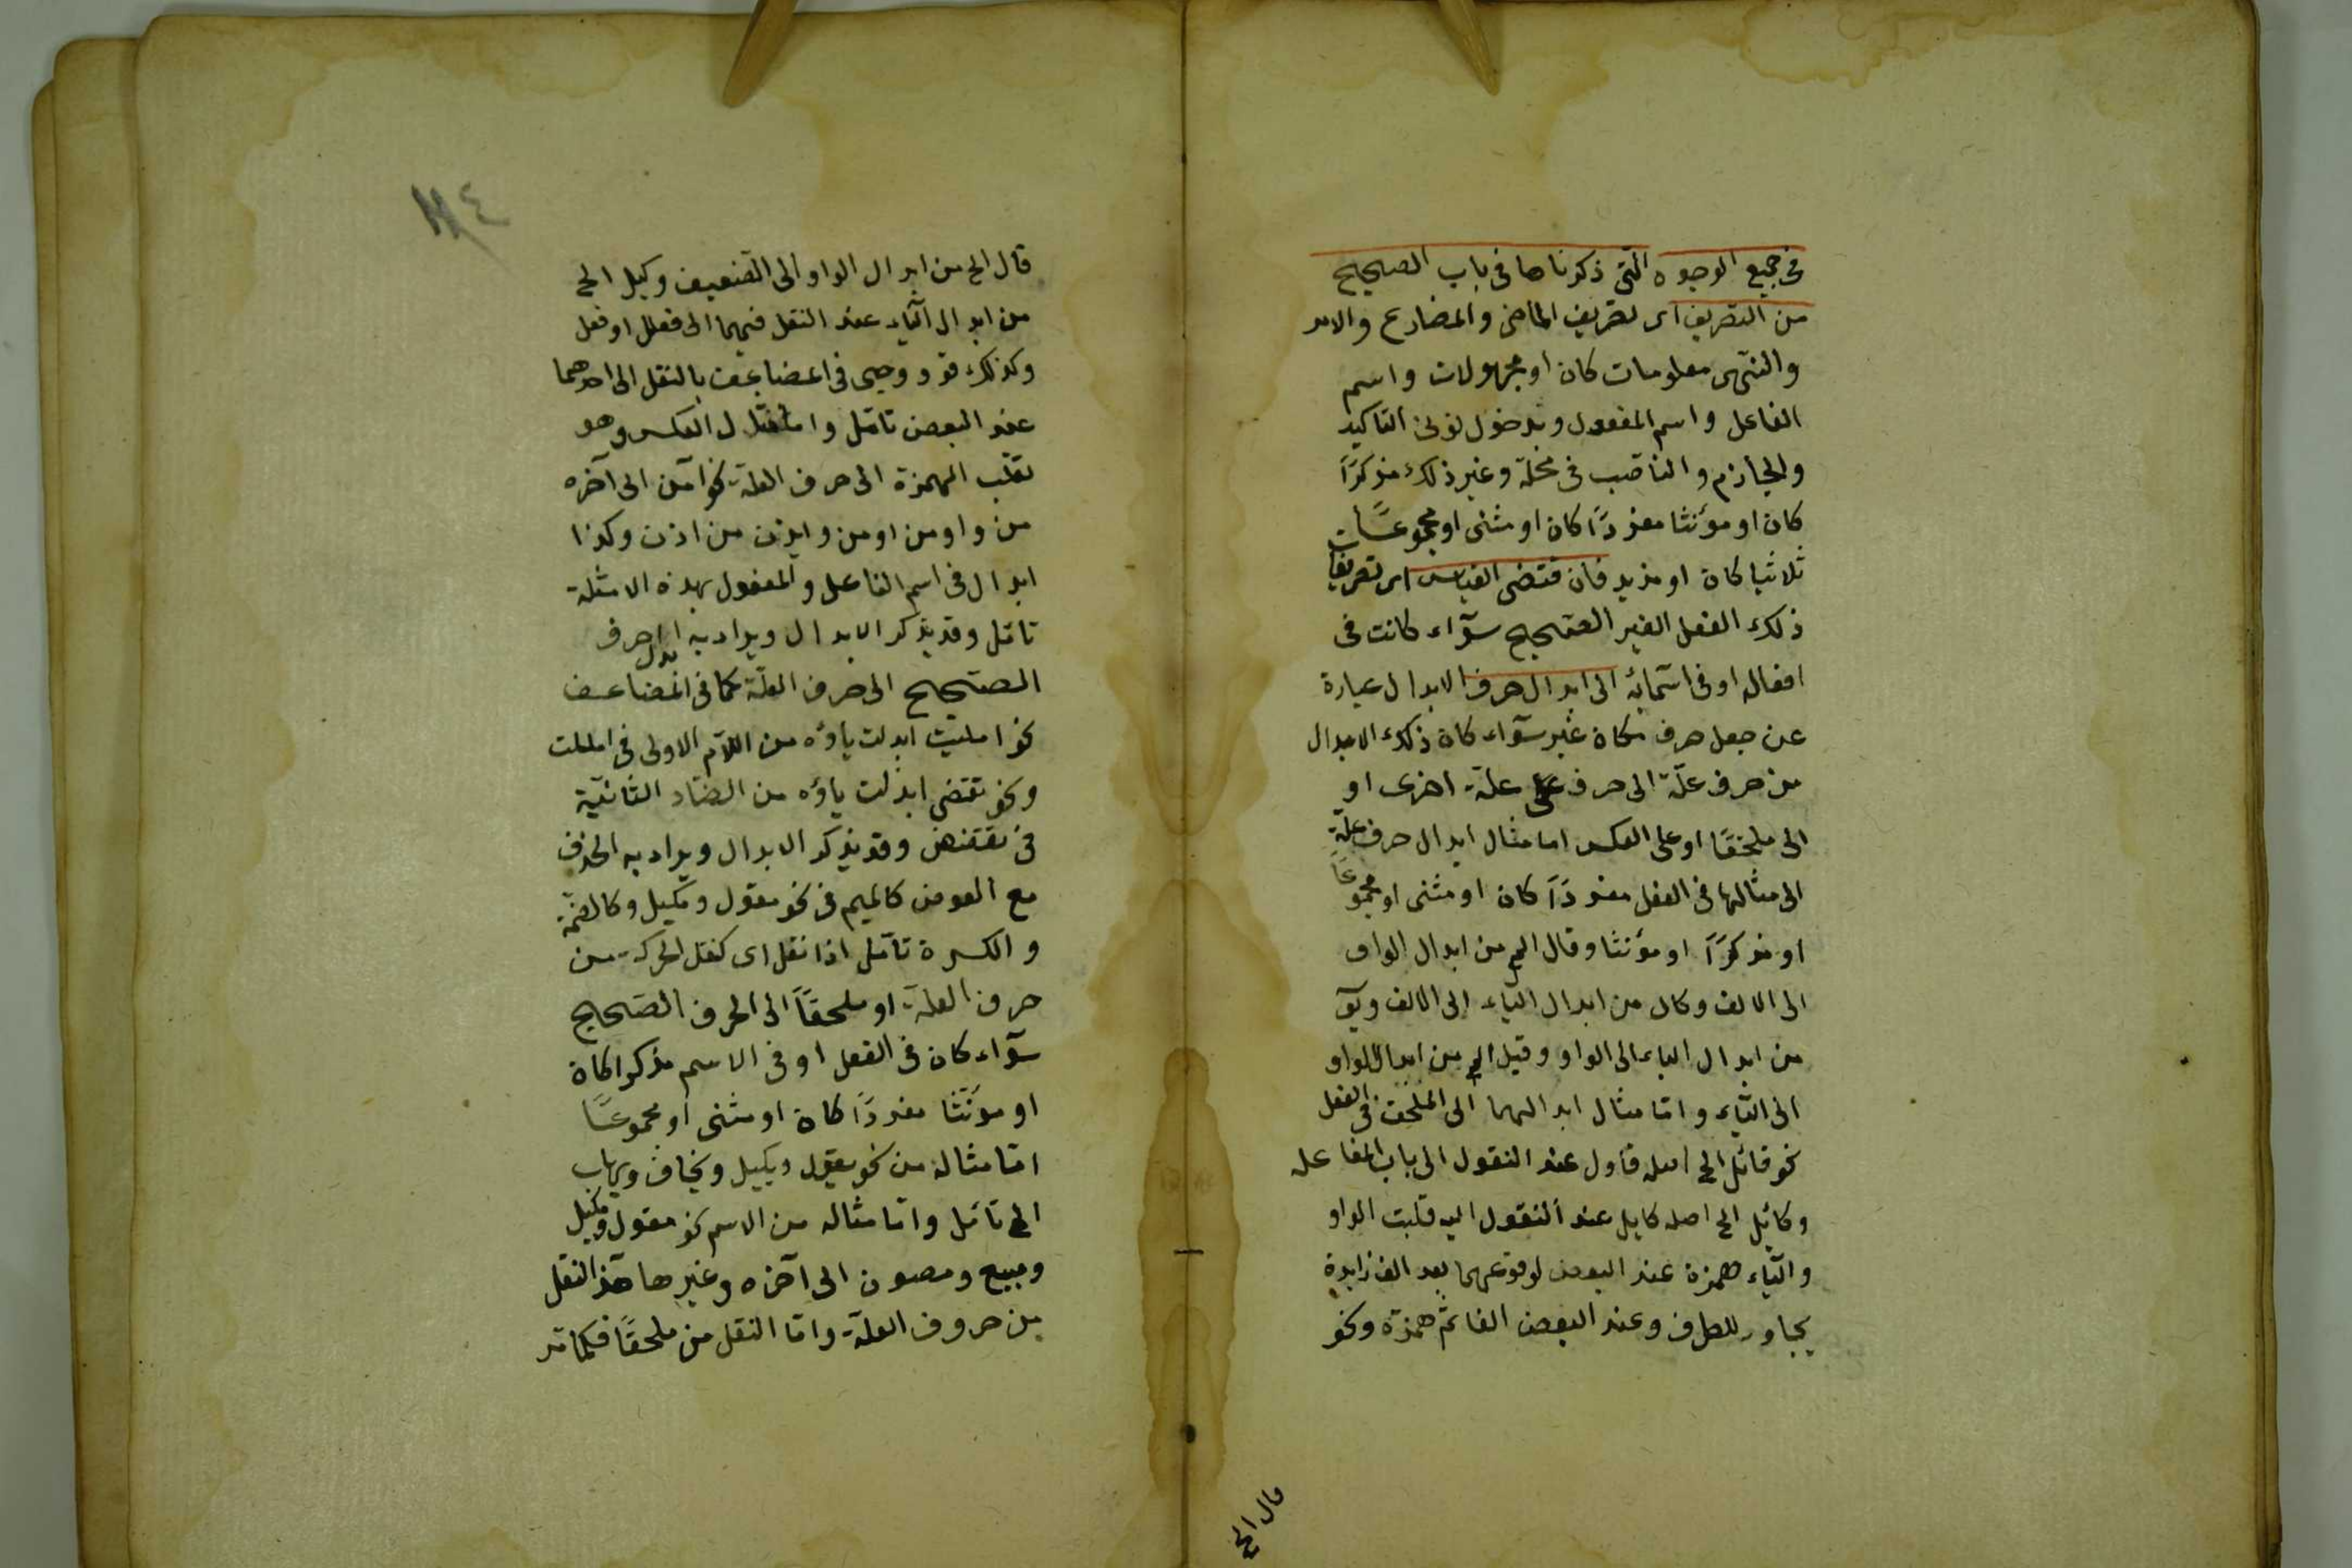 فى جميع الوجوه التى ذكرناها فى باب الصحيح
من التصريف اى تصريف الماضى والمضارع والامر
والنهى معلومات كان او مجهولات واسم
الفاعل واسم المفعول وبدخول نونى التاكيد
والجازم والناصب فى محلّه وغير ذلك مذكرًا
كان او مؤنثا مفردًا كان او مثنى او مجموعًا
ثلاثيا كان او مزيد فان قتضى القياس اى تصريفات
ذلك الفعل الغير الصّحيح سوآء كانت فى
افعاله او فى اسمآئه الى ابدال حرف الابدال عبارة
عن جعل حرف مكان غير سوآء كان ذلك الابدال
من حرف علّة الى حرف علّة اخرى او
الى ملحقًا او على العكس اما مثال ابدال حرف علّة
الى مثالها فى الفعل مفردًا كان او مثنى او مجموعًا
او مذكرًا او مؤنثا وقال الخ من ابدال الواو
الى الالف وكال من ابدال اليآء الى الالف
من ابدال الياء الى الواو وقيل الخ من ابدال الواو
الى اليآء وامّا مثال ابدالهما الى الملحق فى الفعل
نحو قائل الخ اصله قاول عند النقول الى باب المفاعله
وكائل الخ اصله كايل عند النقول اليه قلبت الواو
واليآء همزة عند البعض لوقوعهما بعد الف زايدة
يجاور للطرف وعند البعض الفا ثم همزة ونحو
قال الخ
١١٤
قال الخ من ابدال الواو الى التضعيف وكيل الخ
من ابدال اليآء عند النقل فيهما الى فعلل او فعل
وكذلك قوو وحيى فى المضاعف بالنقل الى احدهما
عند البعض تامّل وامّا العكس وهو
نقلب الهمزة الى حرف العلّة نحو آمن الى آخره
من واومن اومن وايذن من اذن وكذا
ابدال فى اسم الفاعل والمفعول بهذه الامثلة
تامّل وقد يذكر الابدال ويراد به ابدال حرف
الصّحيح الى حرف العلّة كما فى المضاعف
نحو امليت ابدلت ياؤه من اللّام الاولى فى امللت
ونحو تقضى ابدلت ياؤه من الضّاد الثانية
فى تقضض وقد يذكر الابدال ويراد به الحذف
مع العوض كالميم فى نحو مقول ومكيل وكالضمّة
والكسرة تامّل اذا نقل اى كنقل الحركة من
حرف العلّة او ملحقًا الى الحرف الصّحيح
سوآء كان فى الفعل او فى الاسم مذكرا كان
او مؤنّثا مفردًا كان او مثنى او مجموعًا
امّا مثاله من نحو يقول ويكيل ويخاف ويهاب
الخ تامّل وامّا مثاله من الاسم نحو مقول ومكيل
ومبيع ومصون الى آخره وغيرها هذا النقل
من حروف العلّة وامّا النقل من ملحقًا فكما مر